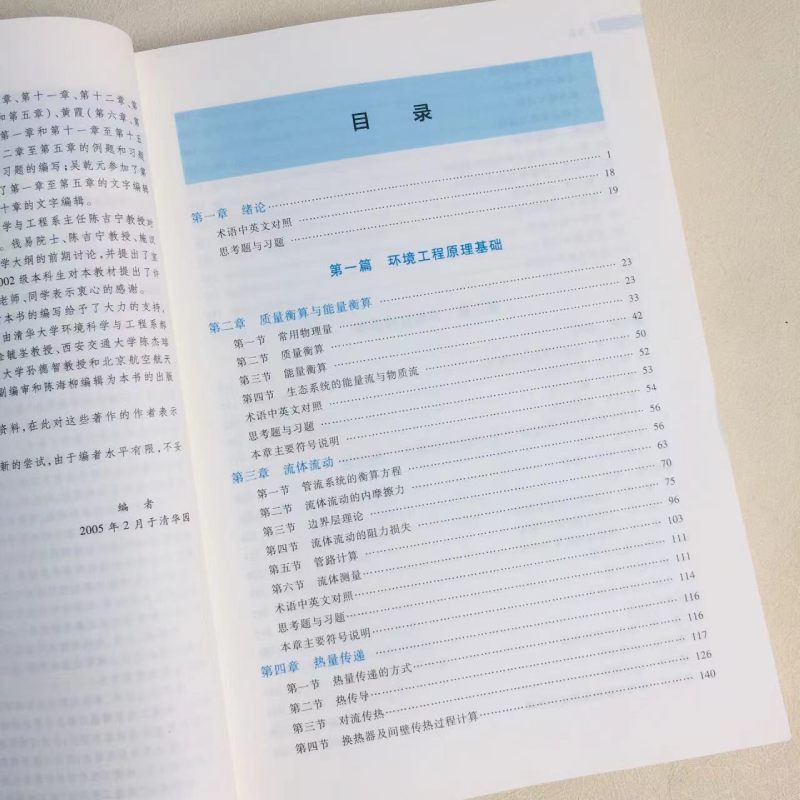 章、第十一章、第十二章、第
和第五章)、黄霞(第六章、第
第一章和第十一章至第十五
二章至第五章的例题和习题
习题的编写;吴乾元参加了第
了第一章至第五章的文字编辑
十章的文字编辑。
学与工程系主任陈吉宁教授对
。钱易院士、陈吉宁教授、施汉
学大纲的前期讨论,并提出了宝
002 级本科生对本教材提出了许
老师、同学表示衷心的感谢。
对本书的编写给予了大力的支持,
由清华大学环境科学与工程系韩
毓荃教授、西安交通大学陈杰瑢
大学孙德智教授和北京航空航天
副编审和陈海柳编辑为本书的出版
资料,在此对这些著作的作者表示
新的尝试,由于编者水平有限,不妥
编 者
2005 年 2 月于清华园
目 录
第一章 绪论 1
术语中英文对照 18
思考题与习题 19
第一篇 环境工程原理基础
第二章 质量衡算与能量衡算 23
第一节 常用物理量 23
第二节 质量衡算 33
第三节 能量衡算 42
第四节 生态系统的能量流与物质流 50
术语中英文对照 52
思考题与习题 53
本章主要符号说明 54
第三章 流体流动 56
第一节 管流系统的衡算方程 56
第二节 流体流动的内摩擦力 63
第三节 边界层理论 70
第四节 流体流动的阻力损失 75
第五节 管路计算 96
第六节 流体测量 103
术语中英文对照 111
思考题与习题 111
本章主要符号说明 114
第四章 热量传递 116
第一节 热量传递的方式 116
第二节 热传导 117
第三节 对流传热 126
第四节 换热器及间壁传热过程计算 140